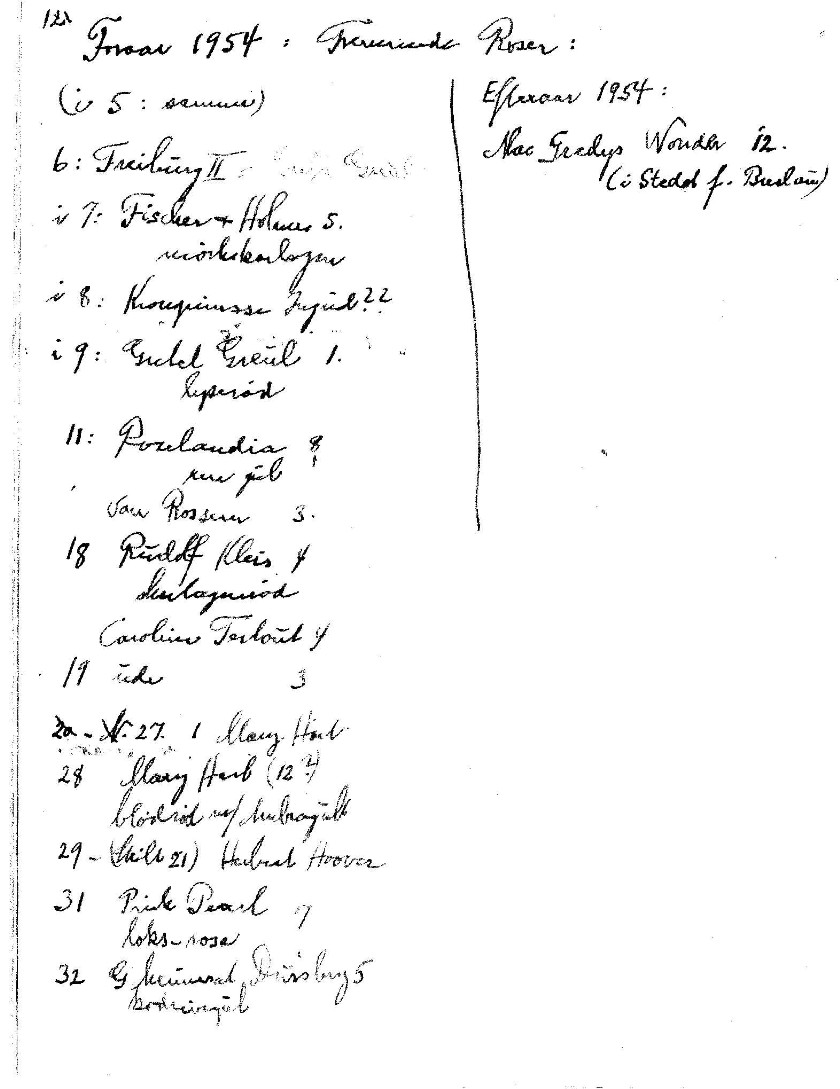 121
Foraar 1954 : Roser :
(i 5 : samme)
6 : Freiburg II -
i 7 : Fischer + Holmes 5.
mörkskarlagen
i 8 : Kronprinsesse Ingrid ??
i 9 : Gretel Greul 1.
lyseröd
11 : Roselandia 8
ren gul
Van Rossem 3.
18 Rudolf Kleis 4
skarlagenröd
Caroline Testout 4
19 ude 3
20 - N. 27. 1 Mary Hart
28 Mary Hart (12 ?)
blodröd m/
29 - (Skilt 21) Herbert Hoover
31 Pink Pearl 7
laks-rosa
32 G Duisberg 5
Efteraar 1954 :
Mac Gredys Wonder 12.
(i Stedet f. Breslau)